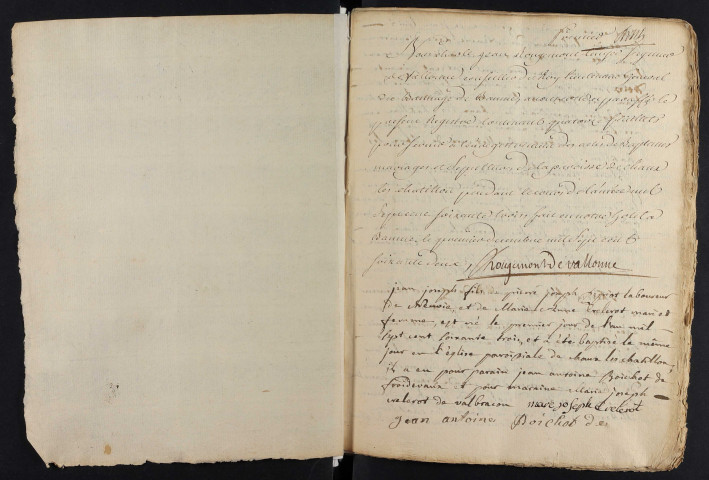 premier
jean Rougemont
de vallonne conseiller du Roy Lieutenant general
au Bailliage de Baume avons cotté et paraffé le
present Registre contenant quatorze feuillets
pour servir a l'enregistrement des actes de Baptemes
mariages et sepultures de la paroisse de Chaux
les chatillon pendant le cours de l'année mil
sept cent soixante trois fait en notre hotel a
Baume le premier decembre mil sept cent
soixante deux Rougemont de vallonne
jean joseph fils de pierre joseph laboureur
de et de Marie Anne Creterot mari et
femme, est né le premier jour de l'an mil
sept cent soixante trois, et a été baptisé le même
jour en l'église paroissiale de chaux les chatillon
il a eu pour parain jean antoine Boichot de
froidevaux et pour maraine Marie joseph
creterot de valbracon marie joseph Creterot
jean antoine Boichot